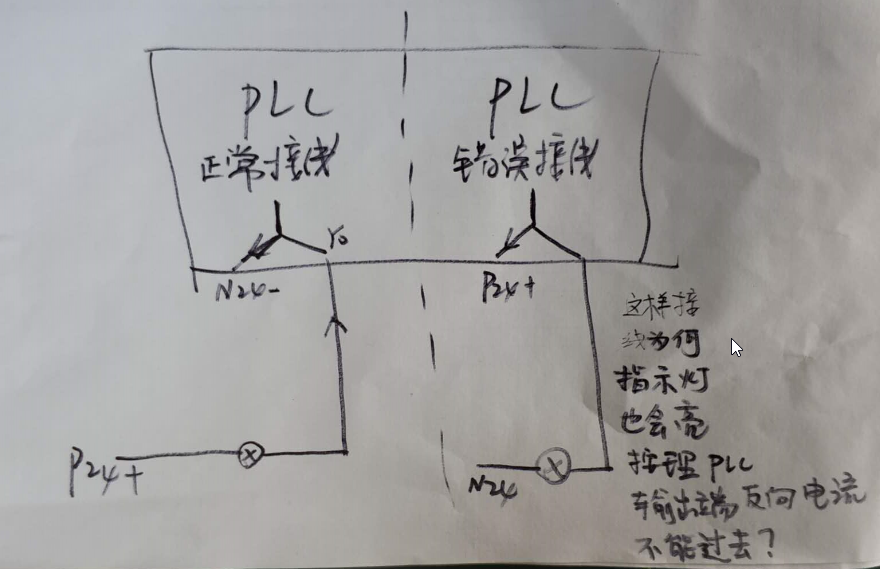 PLC
正常接线
Y0
N24-
P24+
PLC
错误接线
P24+
N24
这样接
线为何
指示灯
也会亮
按理PLC
输出端反向电流
不能过去?